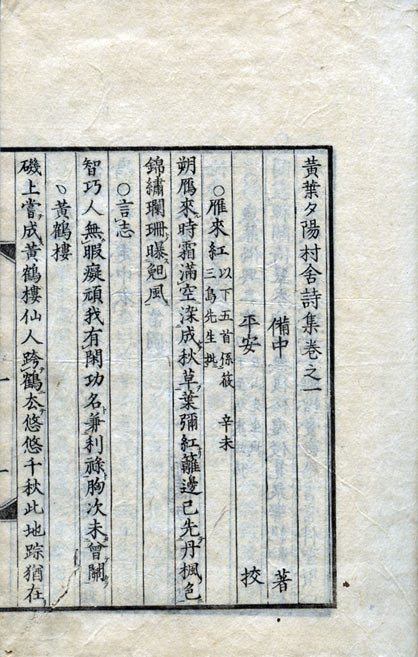 黃葉夕陽村舍詩集卷之一
備中 著
平安 挍
○雁來紅 以下五首係茨 三島先生批 辛未
朔鴈來時霜滿空深成秋草葉彌紅籬邊已先丹楓色
錦繡斕珊曝風
○言志
智巧人無暇癡頑我有閑功名兼利祿胸次未曾關
黃鶴樓
磯上嘗成黃鶴樓仙人跨鶴去悠悠千秋此地踪猶在